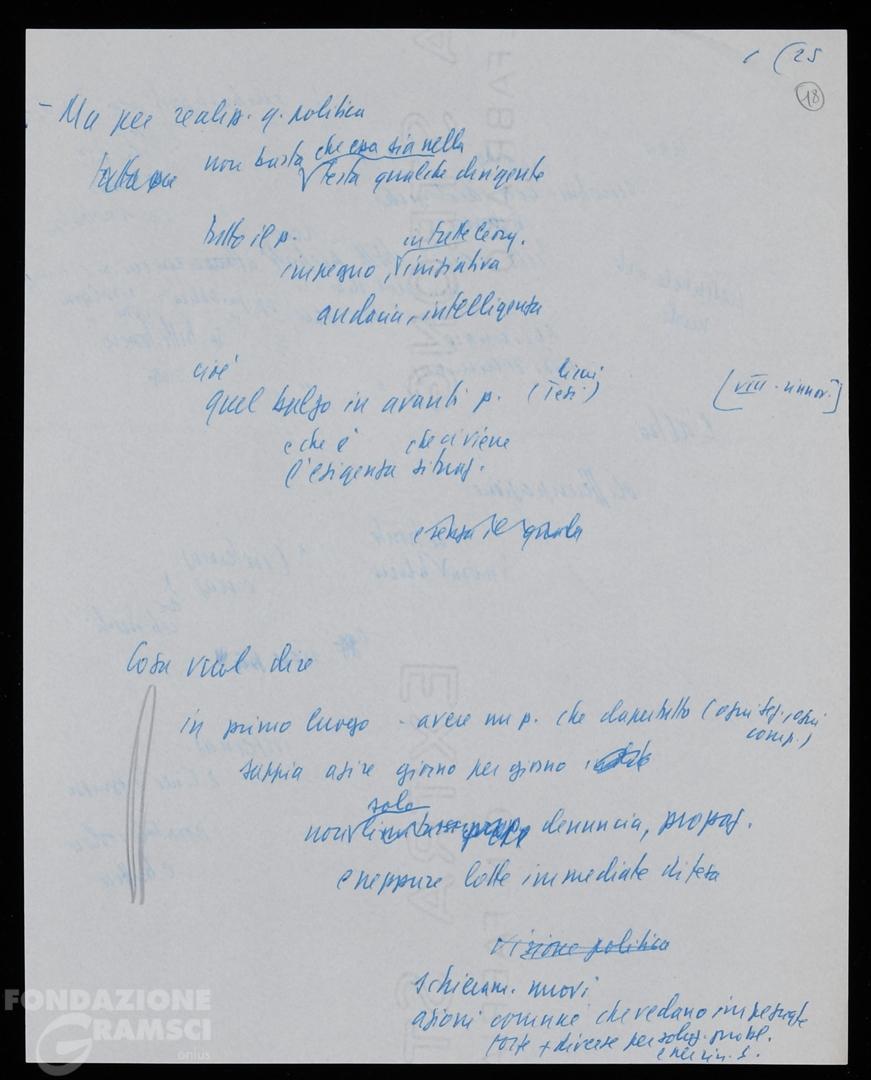 (25
18
- Ma per realizz. q. politica
non basta che essa sia nella
testa qualche dirigente
tutto il p. in tutte le org.
impegno, iniziativa
audacia, intelligenza
cioè
quel balzo in avanti p. (Tesi) (VIII - rinnov.)
e che è che ci viene
l'esigenza situaz.
e senza il quale
Cosa vuol dire
in primo luogo - avere un p. che dapertutto (ogni sez., ogni
comp.)
sappia agire giorno per giorno
solo
non denuncia, propag.
e neppure lotte immediate difesa
visione politica
schieram. nuovi
azioni comuni che vedano impegnate
forze + diverse per soluz. probl.
FONDAZIONE
GRAMSCI
onlus